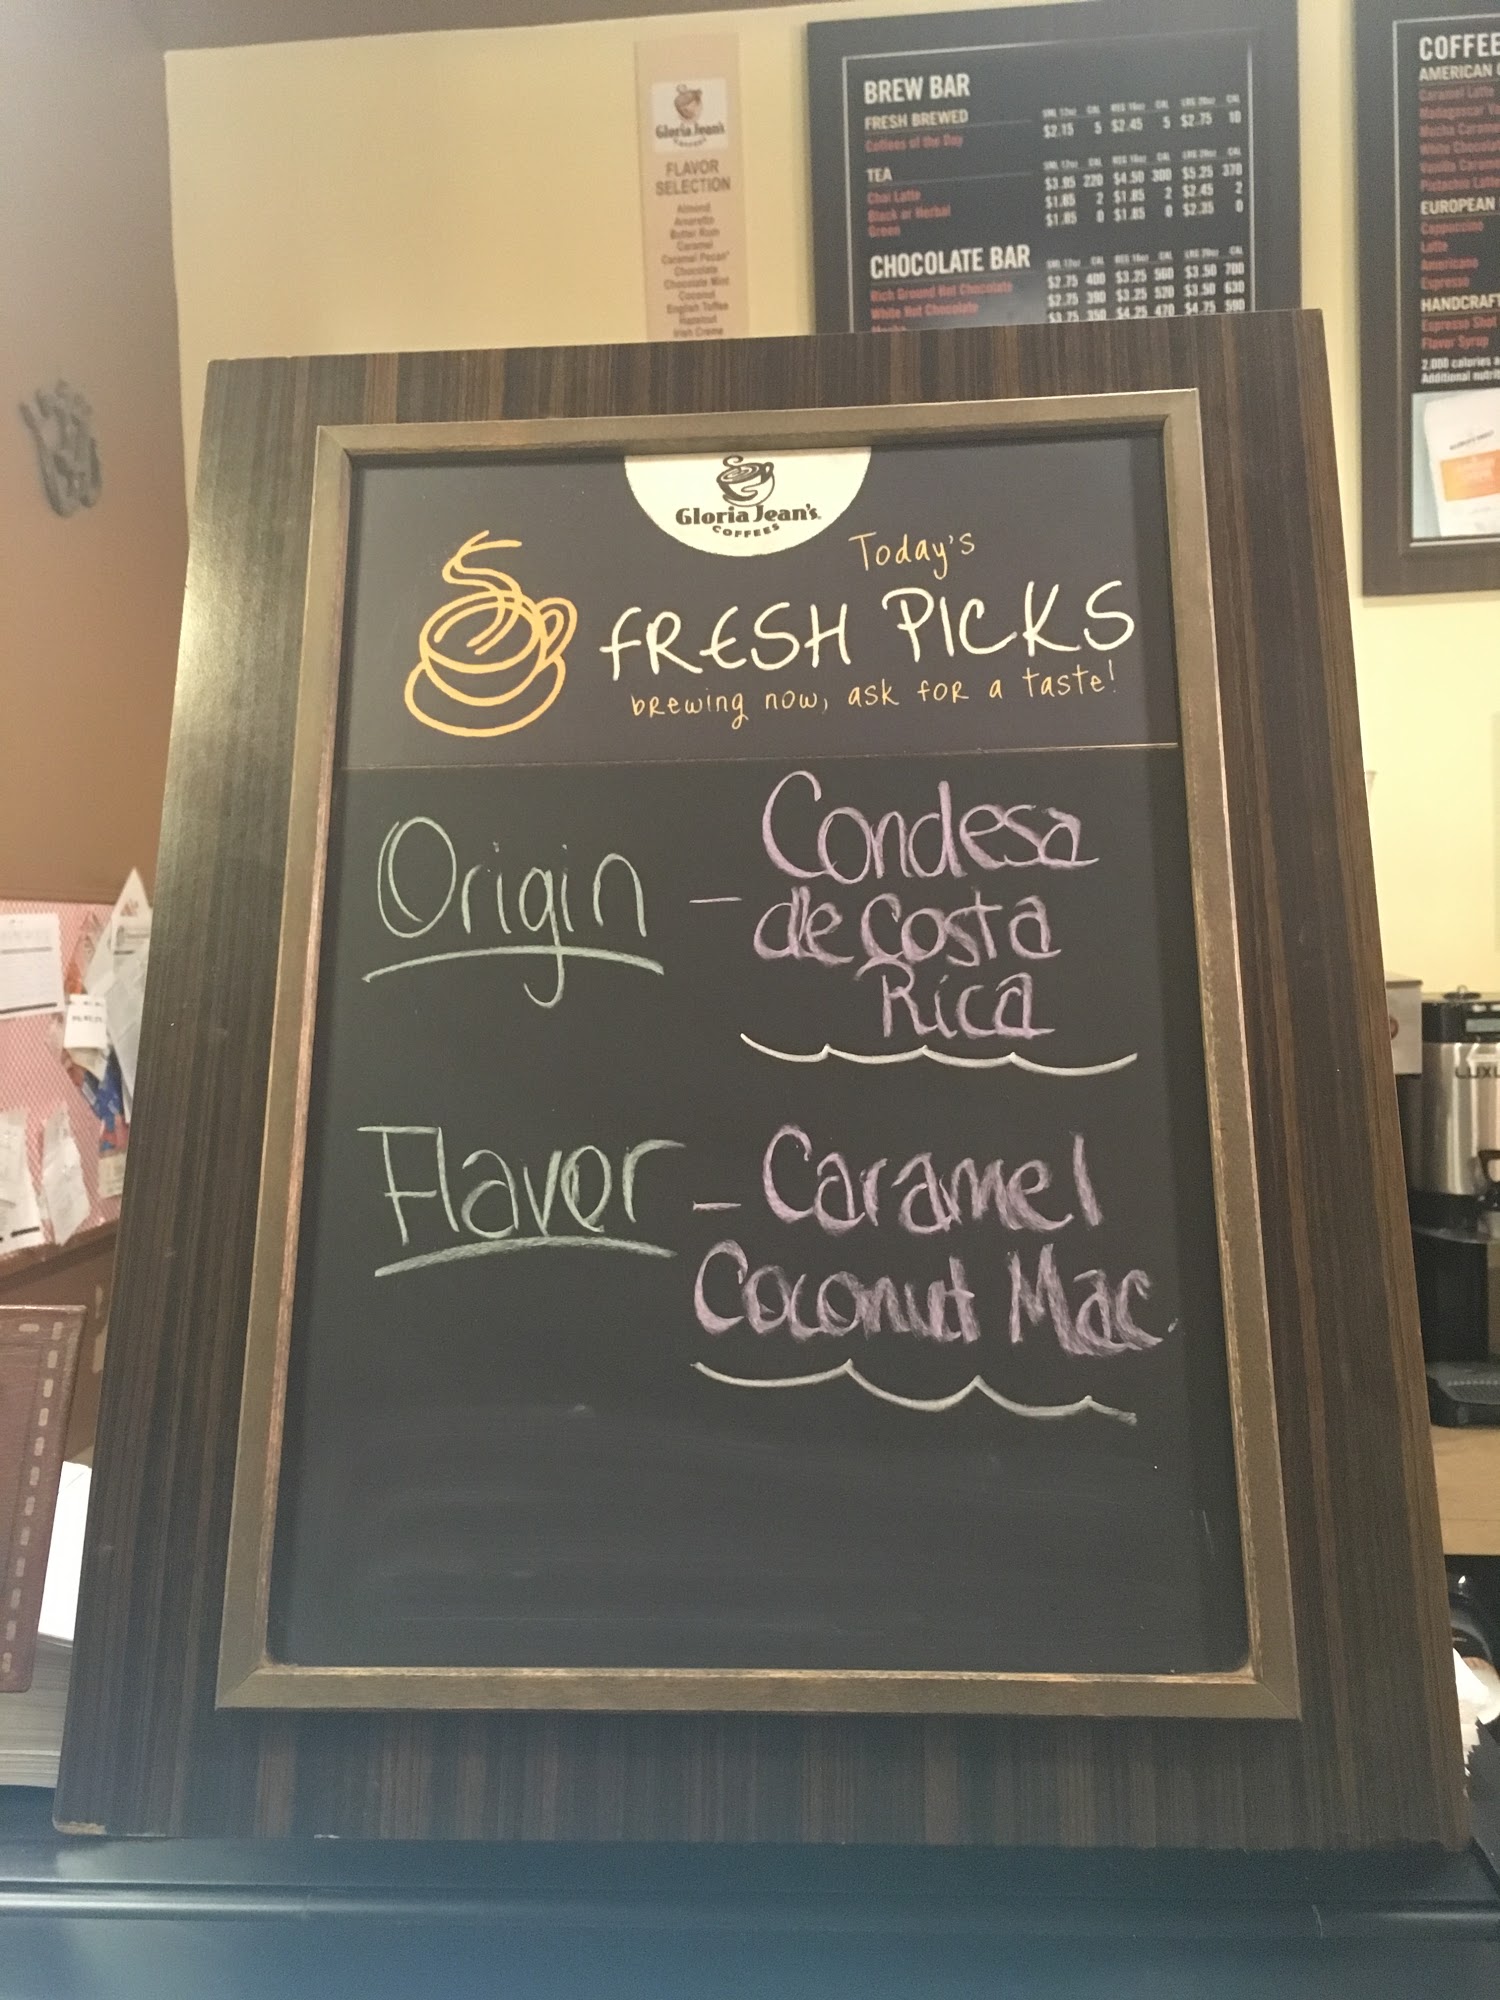 Gloria Jean's
COFFEES
FLAVOR
SELECTION
Almond
Amaretto
Butter Rum
Caramel
Caramel Pecan
Chocolate
Chocolate Mint
Coconut
English Toffee
Hazelnut
Irish Creme
BREW BAR
FRESH BREWED
Coffees of the Day $2.15 5 $2.45 5 $2.75 10
TEA
Chai Latte $3.95 220 $4.50 300 $5.25 370
Black or Herbal $1.85 2 $1.85 2 $2.45 2
Green $1.85 0 $1.85 0 $2.35 0
CHOCOLATE BAR
Rich Ground Hot Chocolate $2.75 400 $3.25 560 $3.50 700
White Hot Chocolate $2.75 390 $3.25 520 $3.50 630
$3.75 350 $4.25 470 $4.75 590
COFFEE
AMERICAN
Caramel Latte
Madagascar Va
Mocha Carame
White Chocolat
Vanilla Carame
Pistachio Latte
EUROPEAN
Cappuccino
Latte
Americano
Espresso
HANDCRAFT
Espresso Shot
Flavor Syrup
2,000 calories a
Additional nutrit
Gloria Jean's
COFFEES
Today's
FRESH PICKS
brewing now, ask for a taste!
Origin - Condesa
de Costa
Rica
Flavor - Caramel
Coconut Mac.
LUXU